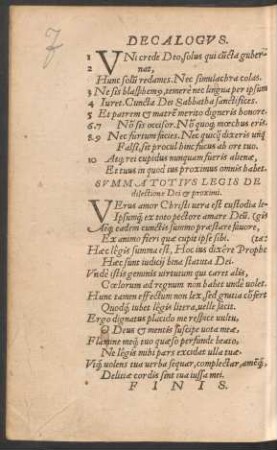 7
DECALOGVS.
1 VNi crede Deo, solus qui cūcta guber-
2 nat,
Hunc solū redames. Nec simulachra colas.
3 Ne sis blasphemꝰ, temerè nec lingua per ipsum
4 Iuret. Cuncta Dei Sabbatha sanctifices.
5 Et patrem & matrē meritò digneris honore.
6.7 Nō sis occisor. Nō quoqꝫ moechus eris.
8.9 Nec furtum facies. Nec quicꝗ̄ dixeris vnꝗ̄
Falsi, sit procul hinc fucus ab ore tuo.
10 Atqꝫ rei cupidus nunquam fueris alienæ,
Et tuus in quod ius proximus omnis habet.
SVMMA TOTIVS LEGIS DE
dilectione Dei & proximi.
VErus amor Christi vera est custodia le-
Ipsumqꝫ ex toto pectore amare Deū. (gis
Atqꝫ eadem cunctis summo præstare fauore,
Ex animo fieri quæ cupis ipse tibi. (tæ
Hæc legis summa est, Hoc ius dixêre Prophe-
Hæc sunt iudicij bene statuta Dei.
Vndè istis geminis virtutum qui caret alis,
Coelorum ad regnum non habet unde uolet.
Hunc tamen effectum non lex, sed gratia cōfert
Quodqꝫ iubet legis litera, uelle facit.
Ergo dignatus placido me respice uultu,
O Deus & mentis suscipe uota meæ,
Flamine meqꝫ tuo quæso perfunde beato,
Ne legis mihi pars excidat ulla tuæ.
Vtqꝫ uolens tua uerba sequar, complectar, amēqꝫ,
Delitiæ cordis sint tua iussa mei.
FINIS.